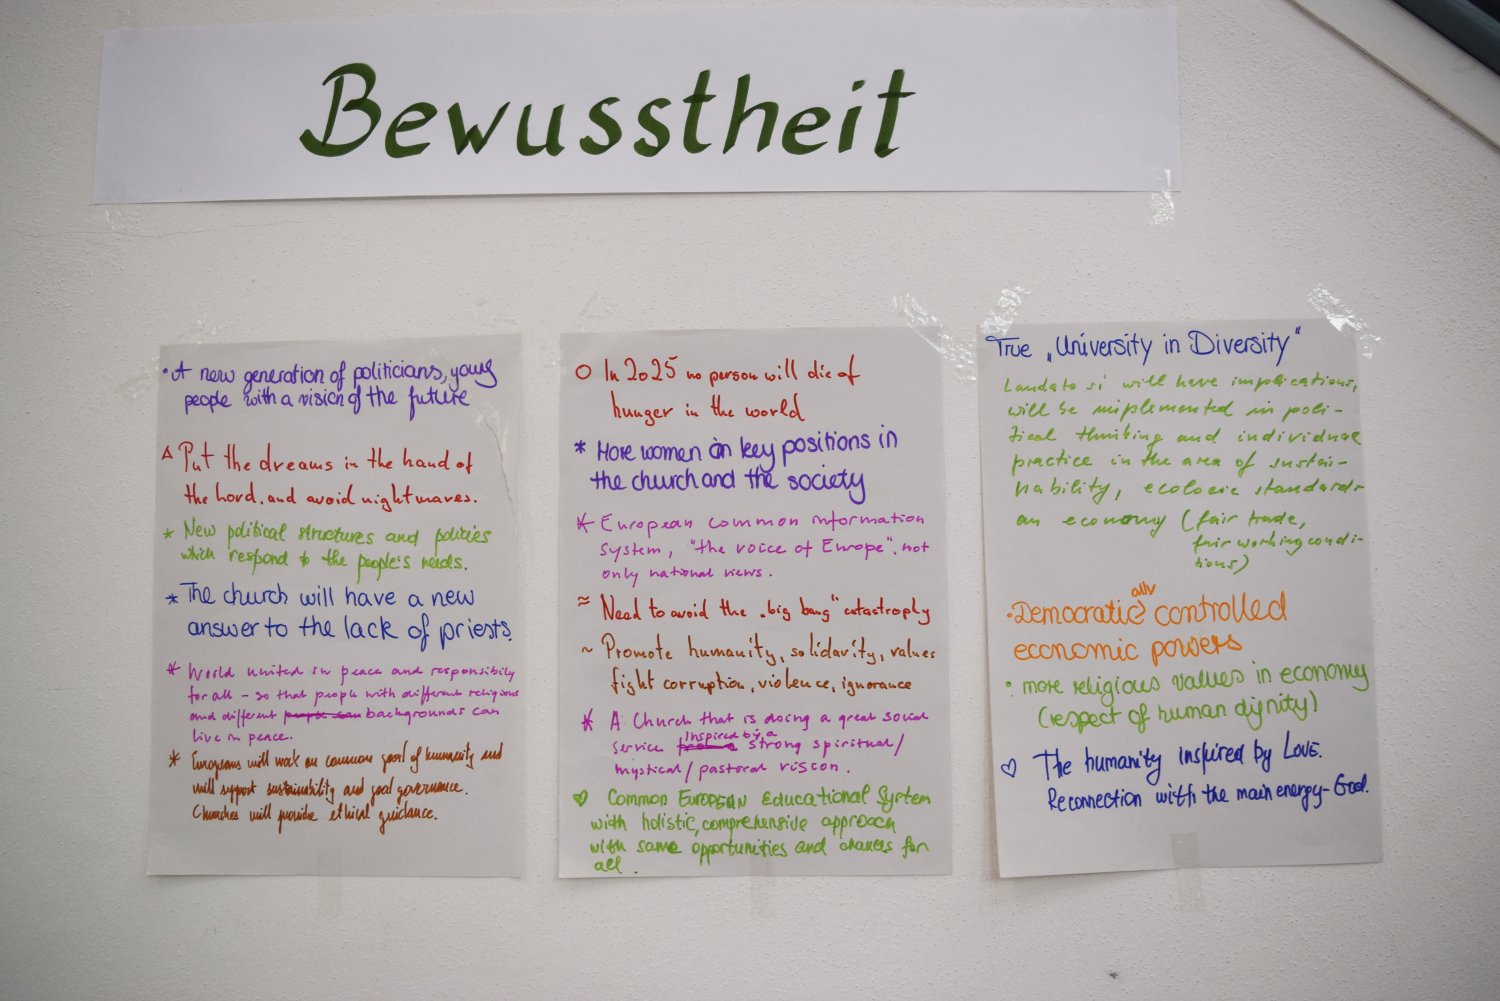 Bewusstheit
· A new generation of politicians, young
people with a vision of the future
Put the dreams in the hand of
the Lord. and avoid nightmares.
* New political structures and policies
which respond to the people's needs.
* The church will have a new
answer to the lack of priests.
* World united in peace and responsibility
for all - so that people with different religions
and different backgrounds can
live in peace.
* Europeans will work on common goal of humanity and
will support sustainability and goal governance.
Churches will provide ethical guidance.
O In 2025 no person will die of
hunger in the world
* More women in key positions in
the church and the society
* European common information
system, "the voice of Europe", not
only national views.
≈ Need to avoid the „big bang" catastrophy
~ Promote humanity, solidarity, values
fight corruption, violence, ignorance
* A Church that is doing a great social
service inspired by a strong spiritual/
mystical/pastoral vision.
♡ Common European Educational System
with holistic, comprehensive approach
with same opportunities and chances for
all.
True „University in Diversity"
Laudato si will have implications,
will be implemented in poli-
tical thinking and individual
practice in the area of sustai-
nability, ecologic standards
an economy (fair trade,
fair working condi-
tions)
· Democratically controlled
economic powers
· more religious values in economy
(respect of human dignity)
♡ The humanity inspired by Love.
Reconnection with the main energy - God.